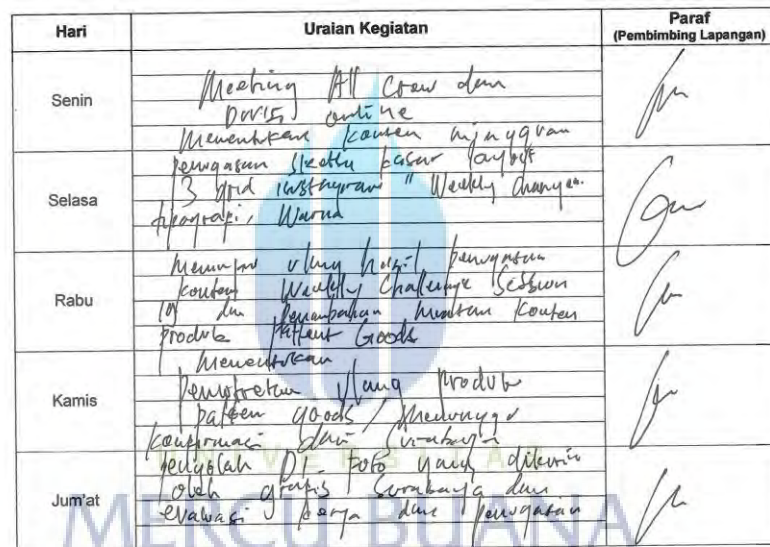 Hari Uraian Kegiatan Paraf
(Pembimbing Lapangan)
Senin
Meeting All Crew dan
online
Menentukan konten
Selasa
penugasan sketsa kasar layout
3 grid instagram "Weekly
tipografi, Warna
Rabu
ulang hasil penugasan
konten Weekly Challenge Session
dan penambahan muatan konten
produk Goods
Kamis
Menentukan
pemotretan ulang produk
goods / Menunggu
konfirmasi dari Surabaya
UNIVERSITAS
Jum'at
foto yang dikirim
oleh grafis Surabaya dan
evaluasi kerja dan penugasan
MERCU BUANA